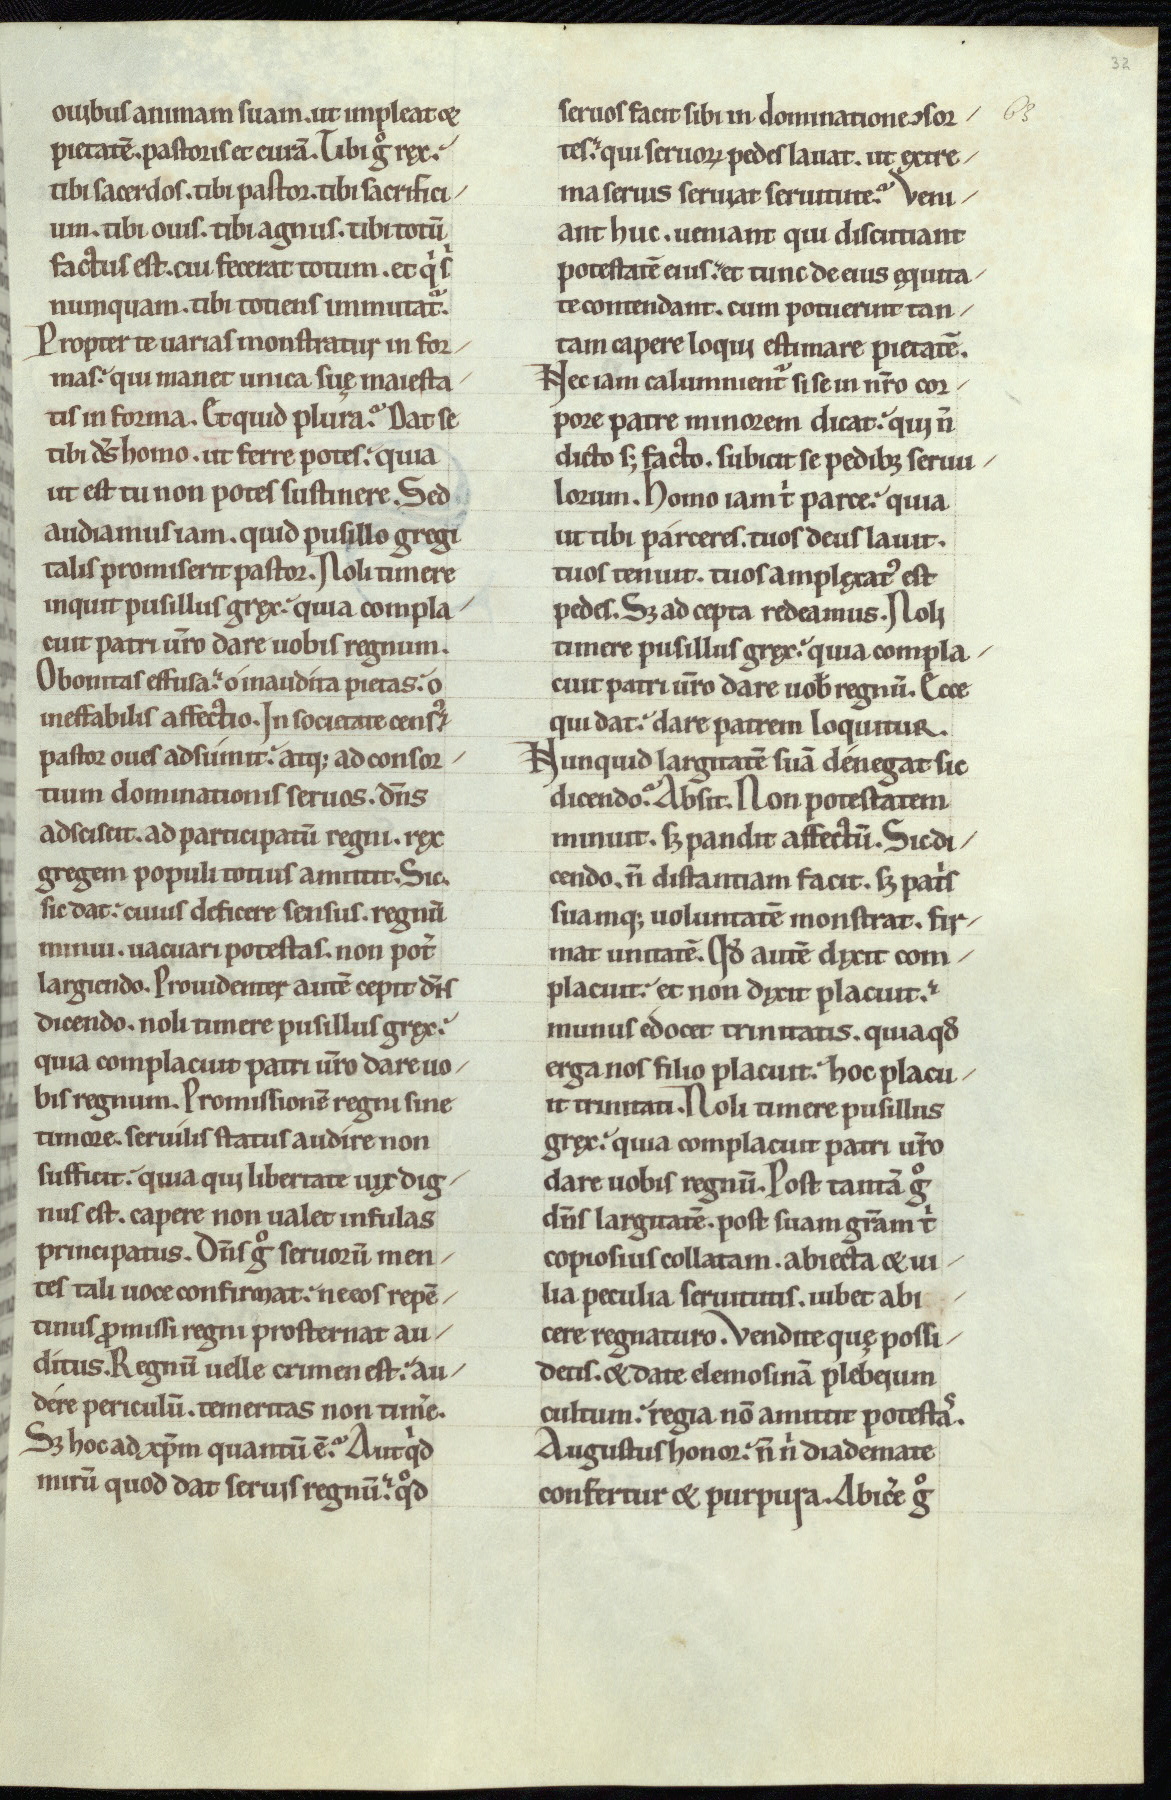 ouibus animam suam. ut impleat &
pietatē. pastoris et curā. Tibi gͦ rex.
tibi sacerdos. tibi pastor. tibi sacrifici/
um. tibi ouis. tibi agnus. tibi totū
factus est. cui fecerat totum. et qͥ sͥ
numquam. tibi totiens immutat᷑.
Propter te uarias monstratur in for/
mas. qui manet unica suę maiesta/
tis in forma. Et quid plura? Dat se
tibi d̄s homo. ut ferre potes. quia
ut est tu non potes sustinere. Sed
audiamus iam. quid pusillo gregi
talis promiserit pastor. Noli timere
inquit pusillus grex. quia compla/
cuit patri ur̄o dare uobis regnum.
O bonitas effusa. o inaudita pietas. o
ineffabilis affectio. In societate
pastor oues adsumit. atq; ad consor/
tium dominationis seruos. dn̄s
adsciscit. ad participatū regni. rex
gregem populi totius amittit. Sic
sic dat. cuius deficere sensus. regnū
minui. uacuari potestas. non pot̄
largiendo. Prouidenter autē cepit dn̄s
dicendo. noli timere pusillus grex.
quia complacuit patri ur̄o dare uo/
bis regnum. Promissionē regni sine
timore. seruilis status audire non
sufficit. quia qui libertate uix dig/
nus est. capere non ualet infulas
principatus. Dn̄s gͦ seruorū men/
tes tali uoce confirmat. ne eos repē/
tinus ꝓmissi regni prosternat au/
ditus. Regnū uelle crimen est. au/
dere periculū. temeritas non timͤe.
Sꝫ hoc ad xp̄m quantū ē? Aut qͥd
mirū quod dat seruis regnū. qͦd
63
32
seruos facit sibi in dominatione ↄsor/
tes. qui seruoꝝ pedes lauat. ut extre/
ma seruis seruiat seruitute? Veni/
ant huc. ueniant qui discutiant
potestatē eius. et tunc de eius ęquita/
te contendant. cum potuerint tan/
tam capere loqui estimare pietatē.
Nec iam calumnient᷑ si se in nr̄o cor/
pore patre minorem dicat. qui n̄
dicto sꝫ facto. subicit se pedibꝫ seruu/
lorum. Homo iam tͥ parce. quia
ut tibi parceres. tuos deus lauit.
tuos tenuit. tuos amplexatꝰ est
pedes. Sꝫ ad cepta redeamus. Noli
timere pusillus grex. quia compla/
cuit patri ur̄o dare uob̄ regnū. Ecce
qui dat. dare patrem loquitur.
Nunquid largitatē suā denegat sic
dicendo? Absit. Non potestatem
minuit. sꝫ pandit affectū. Sic di/
cendo. n̄ distantiam facit. sꝫ patͥs
suamq; uoluntatē monstrat. fir/
mat unitatē. Qd̄ autē dixit com/
placuit. et non dixit placuit.
munus edocet trinitatis. quia qd̄
erga nos filio placuit. hoc placu/
it trinitati. Noli timere pusillus
grex. quia complacuit patri ur̄o
dare uobis regnū. Post tantā gͦ
dn̄s largitatē. post suam gr̄am tͥ
copiosius collatam. abiecta & ui/
lia peculia seruitutis. iubet abi/
cere regnaturo. Vendite quę possi/
detis. & date elemosinā plebeium
cultum. regia nō amittit potestaˢ.
Augustus honor. n̄ nͥ diademate
confertur & purpura. Abicͤe gͦ